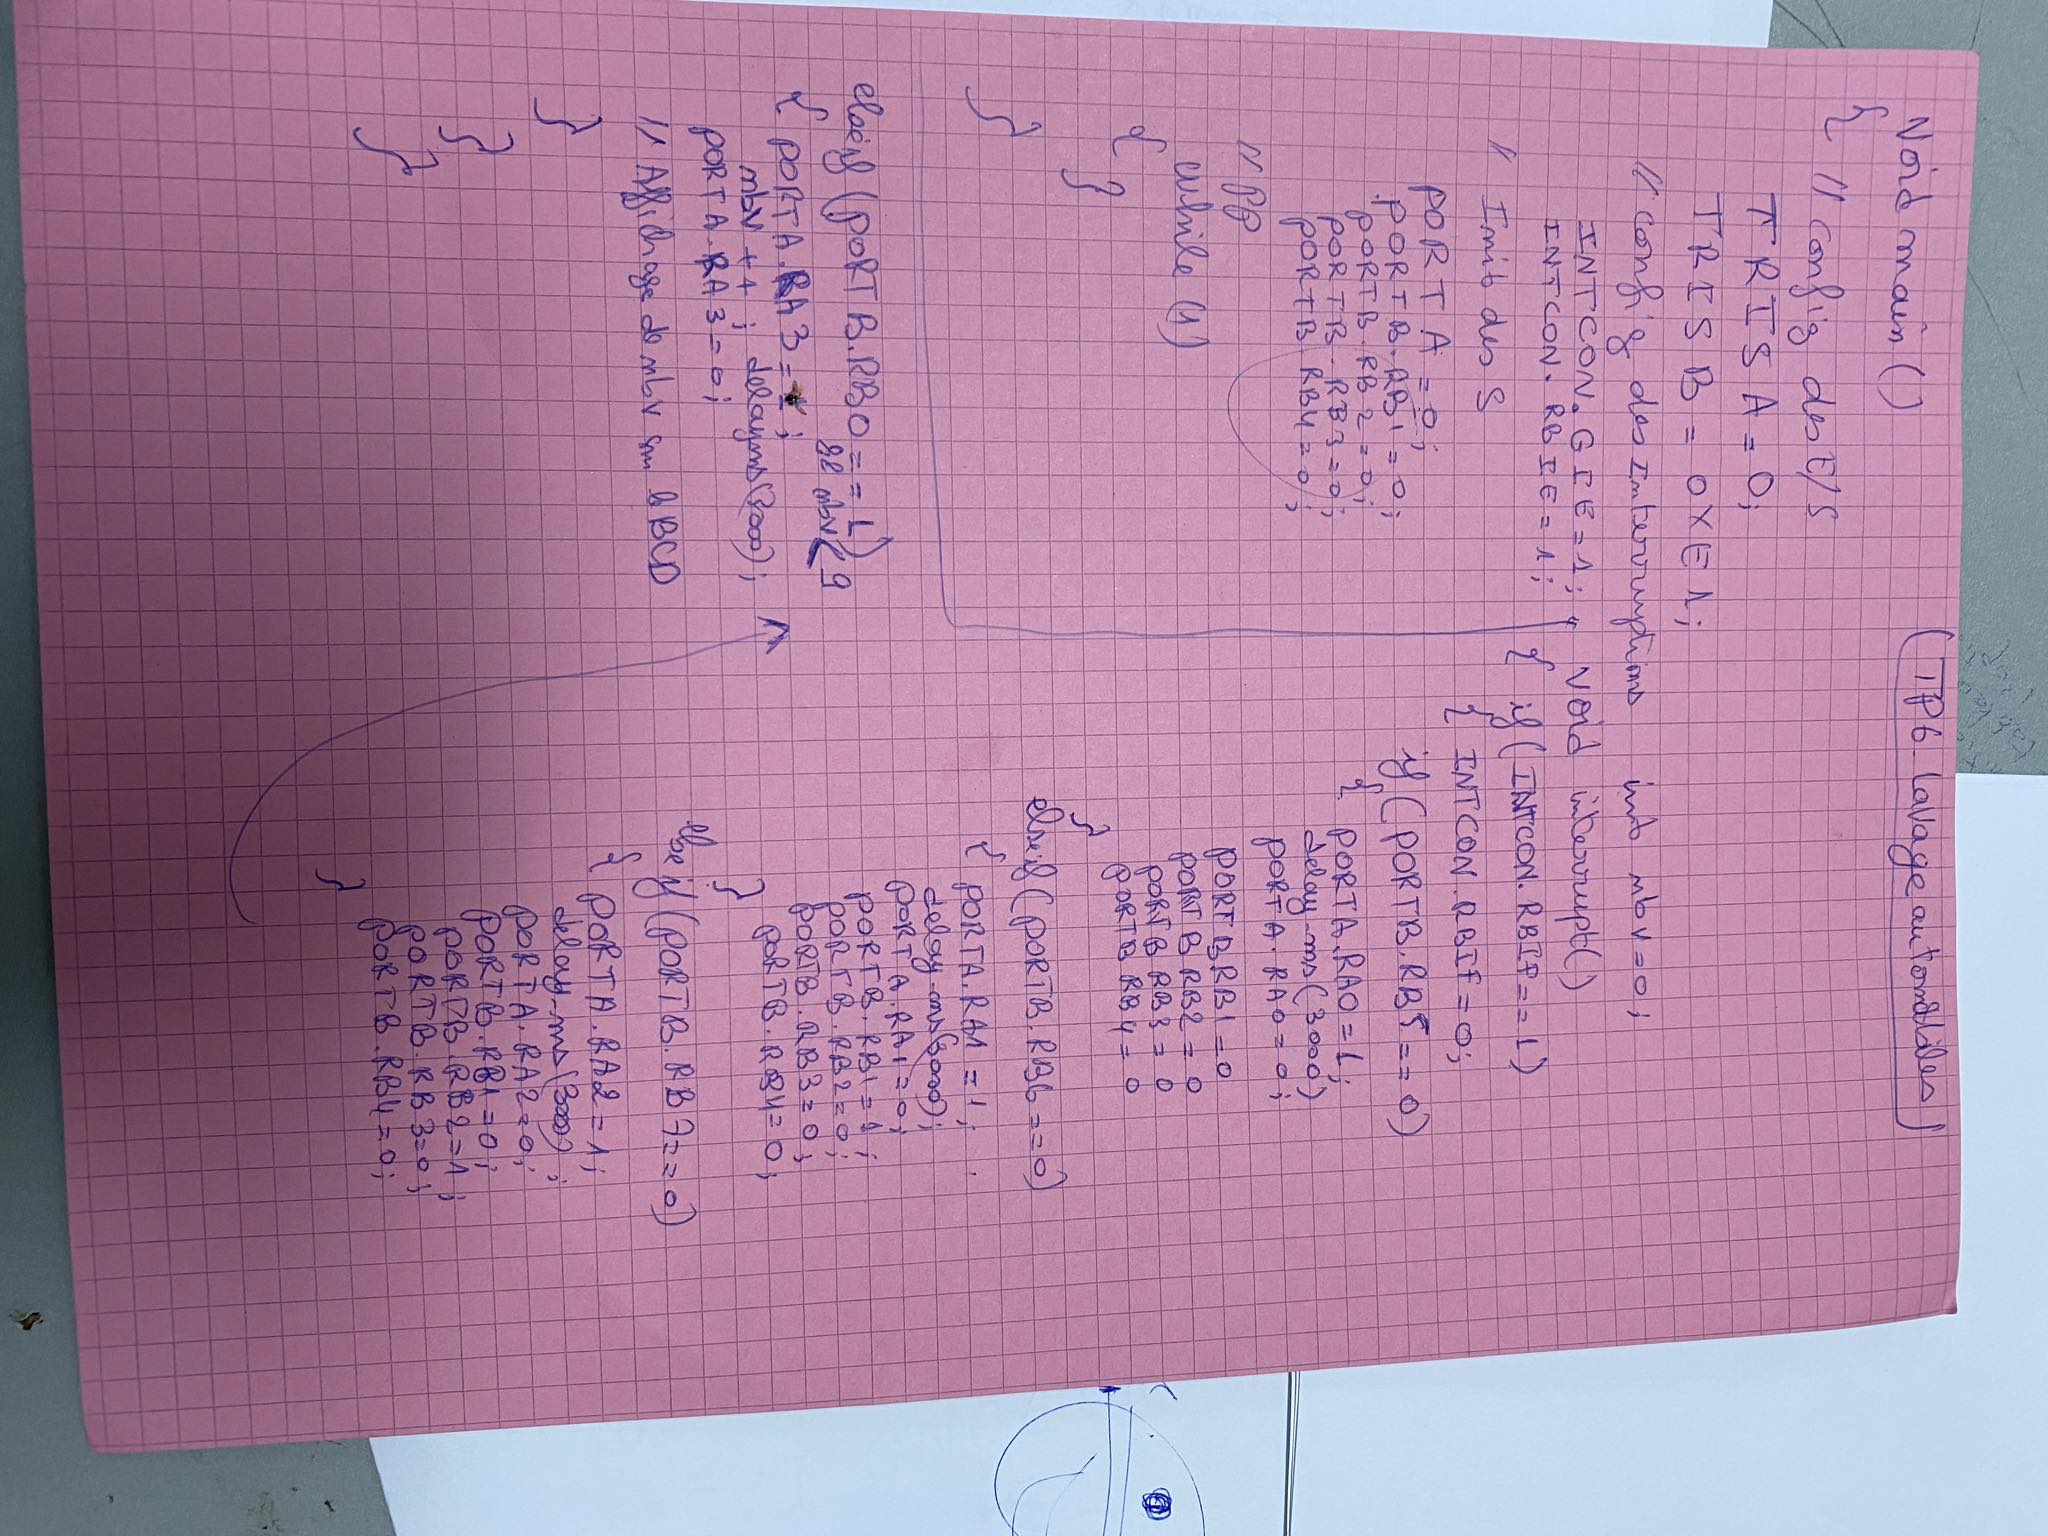 (TP6- Lavage automobiles)
Void main ()
{ // config des E/S
TRISA = 0;
TRISB = 0XE1;
// config des Interruptions
INTCON.GIE=1;
INTCON.RBIE=1;
// Init des S
PORTA = 0;
PORTB.RB1=0;
PORTB.RB2=0;
PORTB.RB3=0;
PORTB.RB4=0;
// PP
while (1)
{
}
}
int nbv=0;
void interrupt()
{ if (INTCON.RBIF==1)
{ INTCON.RBIF=0;
if (PORTB.RB5==0)
{ PORTA.RA0=1;
delay-ms(3000)
PORTA.RA0=0;
PORTBRB1=0
PORTB RB2=0
PORTB RB3=0
PORTB RB4=0
}
else if (PORTB.RB6==0)
{ PORTA.RA1=1;
delay-ms(3000);
PORTA.RA1=0;
PORTB.RB1=1;
PORTB.RB2=0;
PORTB.RB3=0;
PORTB.RB4=0;
}
else if (PORTB.RB7==0)
{ PORTA.RA2=1;
delay-ms(3000);
PORTA.RA2=0;
PORTB.RB1=0;
PORTB.RB2=1;
PORTB.RB3=0;
PORTB.RB4=0;
}
else if (PORTB.RB0==1)
&& nbv<9
{ PORTA.RA3=1;
nbv++; delayms(3000);
PORTA.RA3=0;
// Affichage de nbv sur le BCD
}
}
}